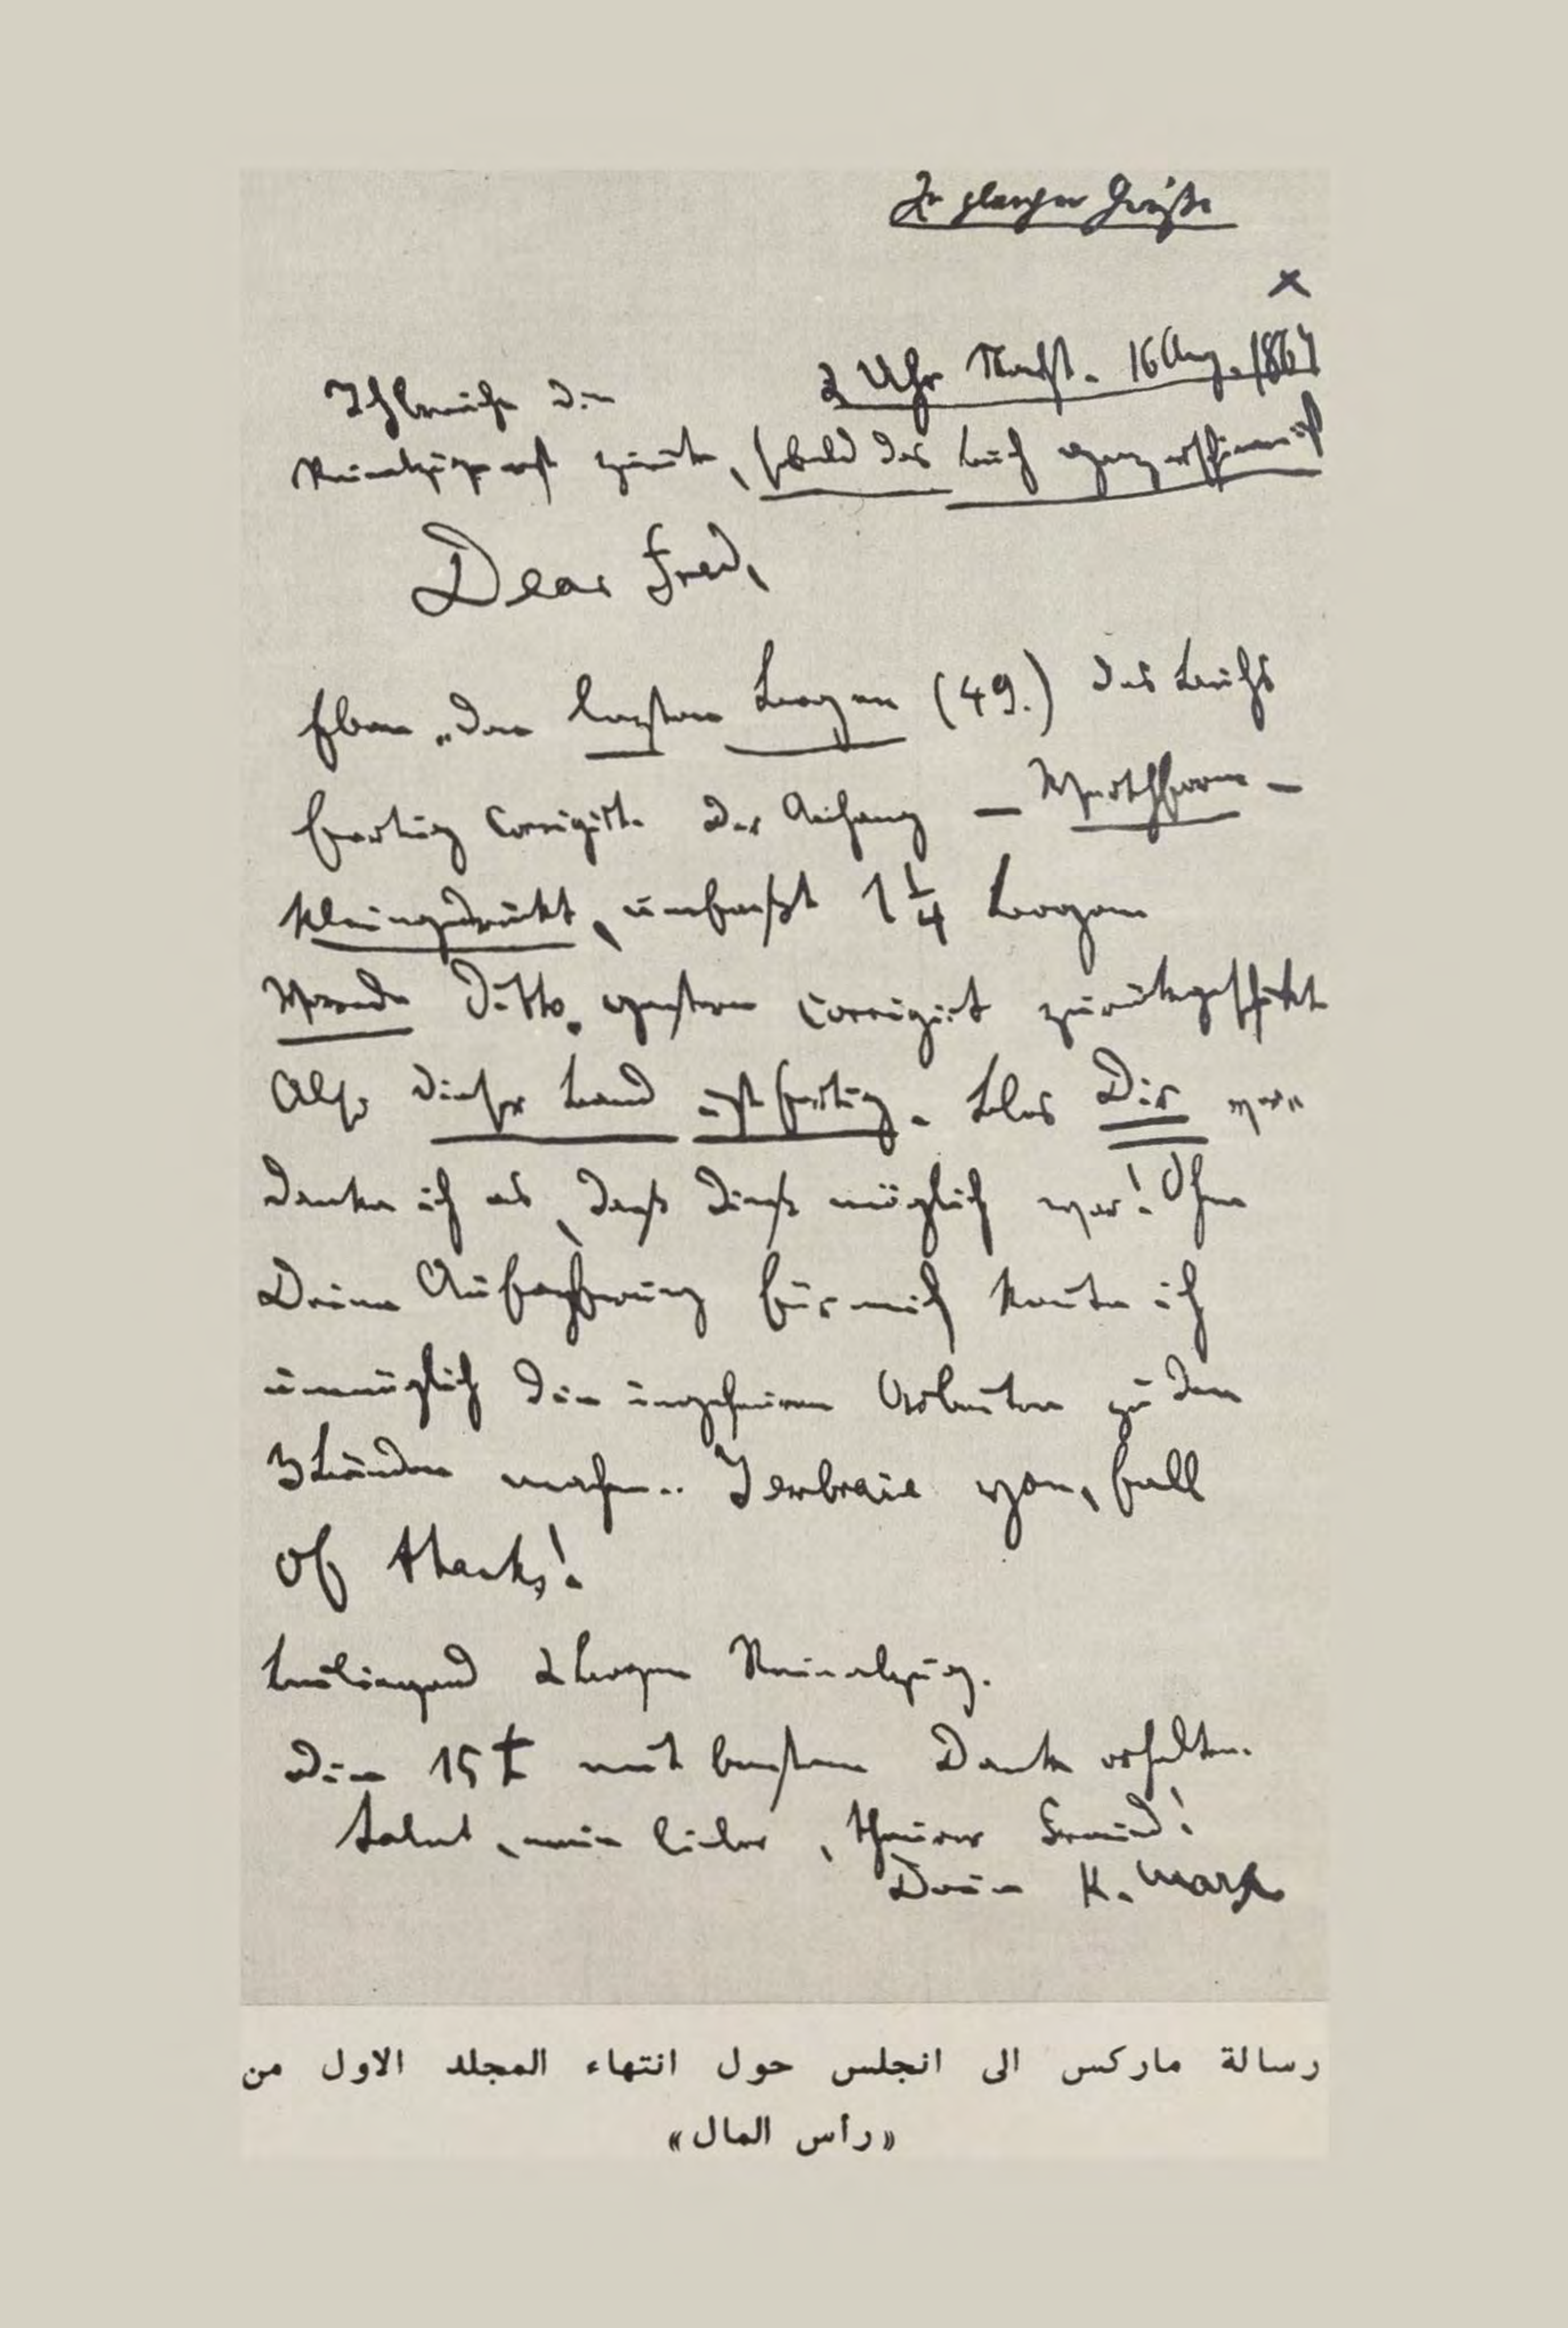 In gleicher Größe
×
2 Uhr Nacht. 16 Aug. 1867
Ich brauche die
Reinabzüge erst zurück, sobald das Buch ganz erschienen ist
Dear Fred,
Eben den letzten Bogen (49.) des Buchs
fertig corrigirt. Der Anhang – Werthform –
kleingedruckt, umfaßt 1 1/4 Bogen
Vorrede ditto. gestern corrigirt zurückgeschickt
Also dieser Band ist fertig. Blos Dir ver-
danke ich es, daß dieß möglich war! Ohne
Deine Aufopfrung für mich konnte ich
unmöglich die ungeheuren Arbeiten zu den
3 Bänden machen. I embrace you, full
of thanks!
Beiliegend 2 Bogen Reinabzug.
Die 15 £ mit bestem Dank erhalten.
Salut, mein lieber, theurer Freund!
Dein K. Marx
رسالة ماركس الى انجلس حول انتهاء المجلد الاول من
«رأس المال»